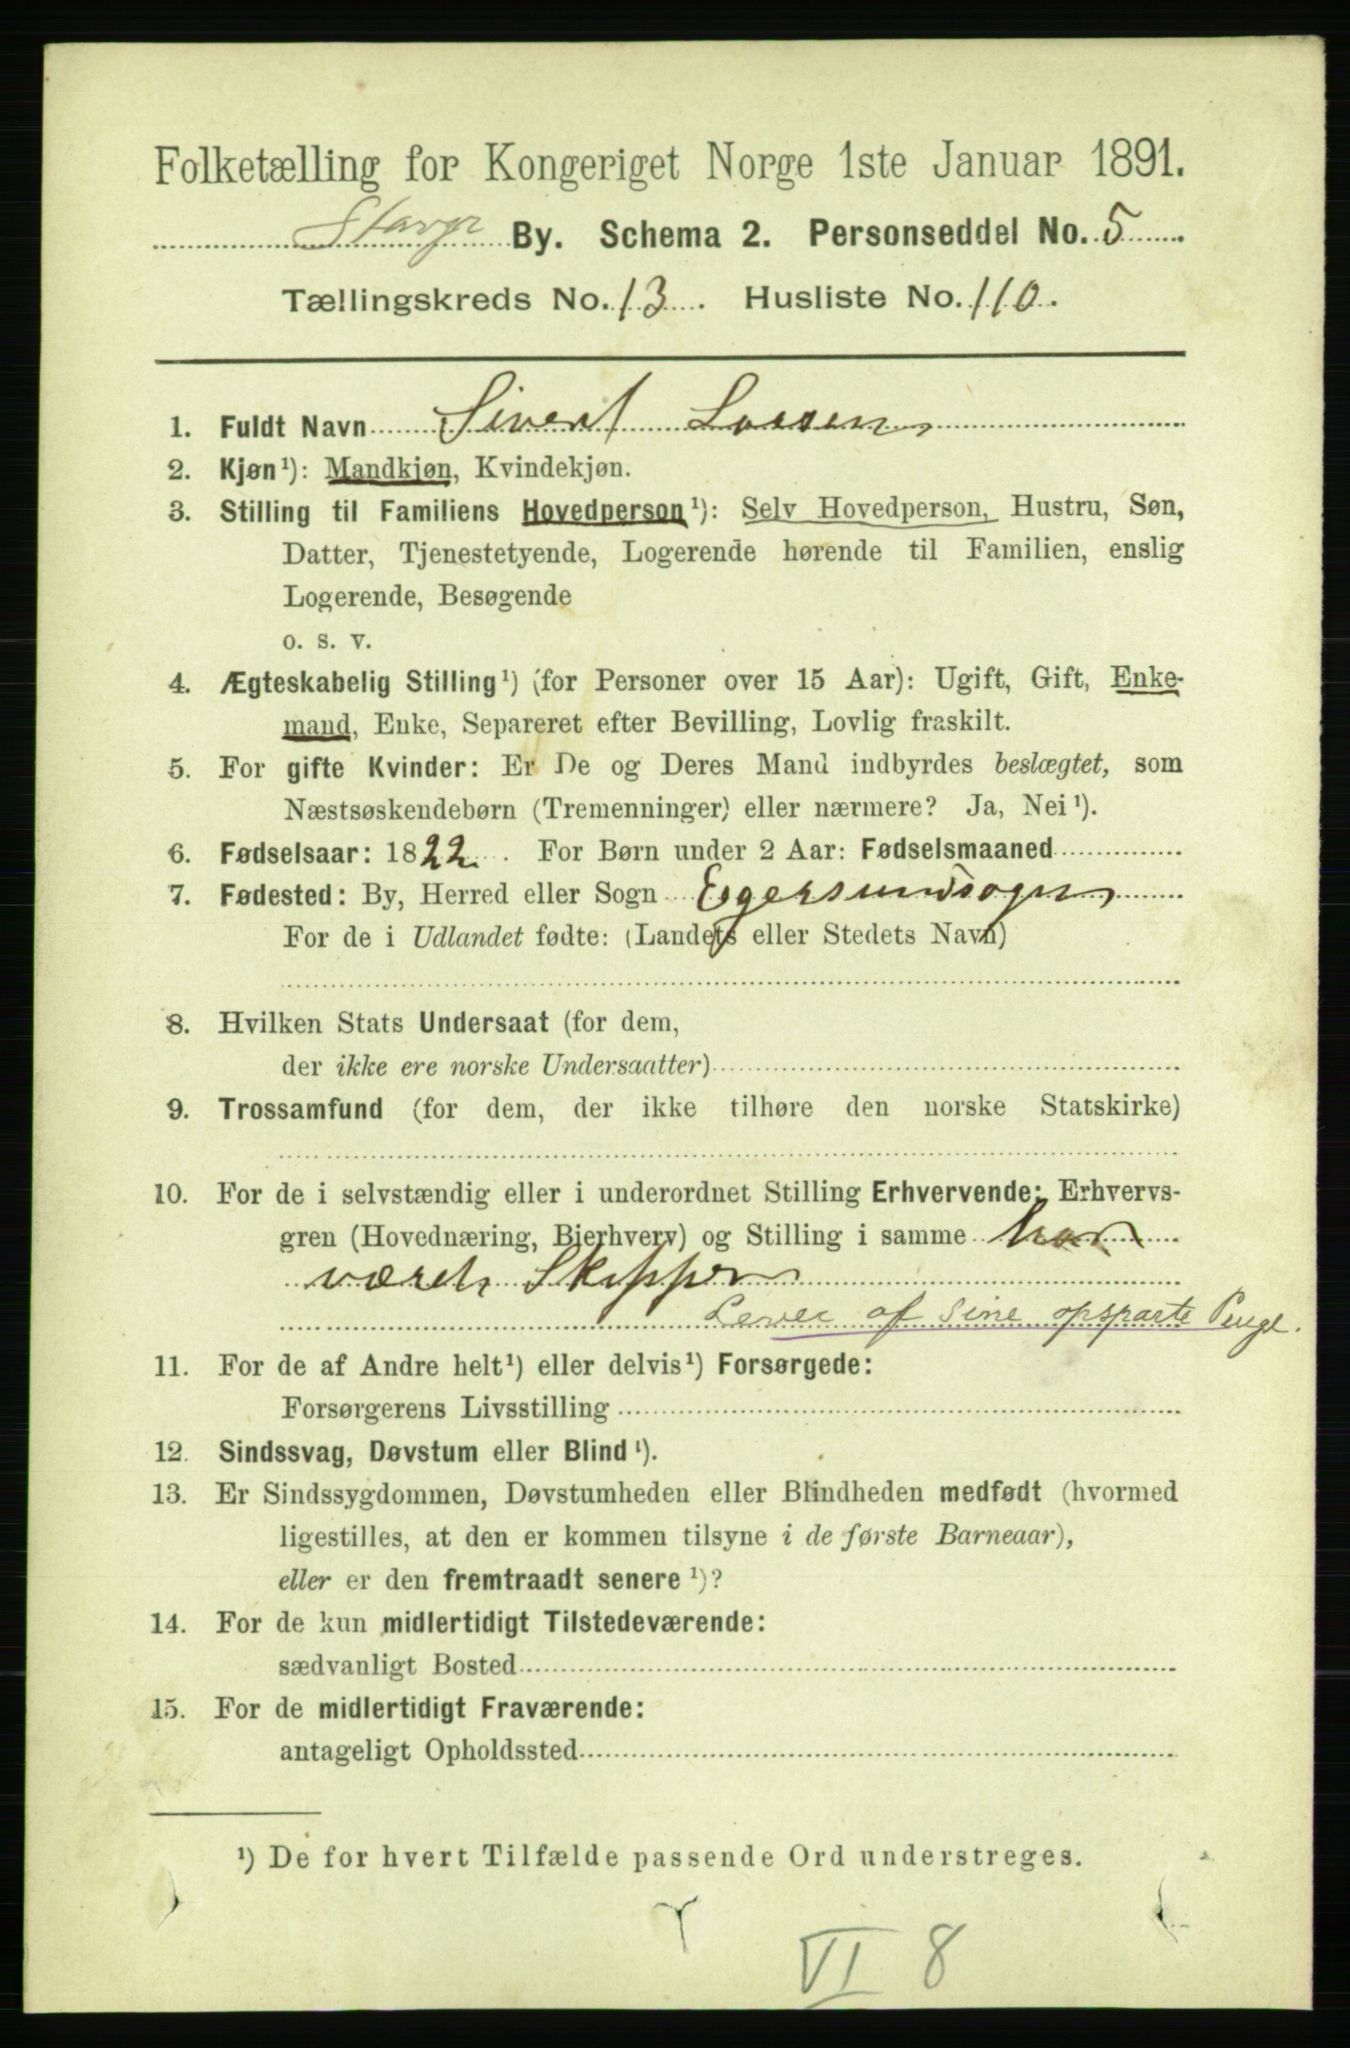 Folketælling for Kongeriget Norge 1ste Januar 1891.
Stavgr By. Schema 2. Personseddel No. 5
Tællingskreds No. 13. Husliste No. 110.
1. Fuldt Navn Sivert Larsen
2. Kjøn¹): Mandkjøn, Kvindekjøn.
3. Stilling til Familiens Hovedperson¹): Selv Hovedperson, Hustru, Søn,
Datter, Tjenestetyende, Logerende hørende til Familien, enslig
Logerende, Besøgende
o. s. v.
4. Ægteskabelig Stilling¹) (for Personer over 15 Aar): Ugift, Gift, Enke-
mand, Enke, Separeret efter Bevilling, Lovlig fraskilt.
5. For gifte Kvinder: Er De og Deres Mand indbyrdes beslægtet, som
Næstsøskendebørn (Tremenninger) eller nærmere? Ja, Nei¹).
6. Fødselsaar: 1822. For Børn under 2 Aar: Fødselsmaaned
7. Fødested: By, Herred eller Sogn Egersundsogn
For de i Udlandet fødte: (Landets eller Stedets Navn)
8. Hvilken Stats Undersaat (for dem,
der ikke ere norske Undersaatter)
9. Trossamfund (for dem, der ikke tilhøre den norske Statskirke)
10. For de i selvstændig eller i underordnet Stilling Erhvervende: Erhvervs-
gren (Hovednæring, Bierhverv) og Stilling i samme har
væreh Skipper
Lever af sine opsparte Penge.
11. For de af Andre helt¹) eller delvis¹) Forsørgede:
Forsørgerens Livsstilling
12. Sindssvag, Døvstum eller Blind¹).
13. Er Sindssygdommen, Døvstumheden eller Blindheden medfødt (hvormed
ligestilles, at den er kommen tilsyne i de første Barneaar),
eller er den fremtraadt senere¹)?
14. For de kun midlertidigt Tilstedeværende:
sædvanligt Bosted
15. For de midlertidigt Fraværende:
antageligt Opholdssted
¹) De for hvert Tilfælde passende Ord understreges.
VI 8